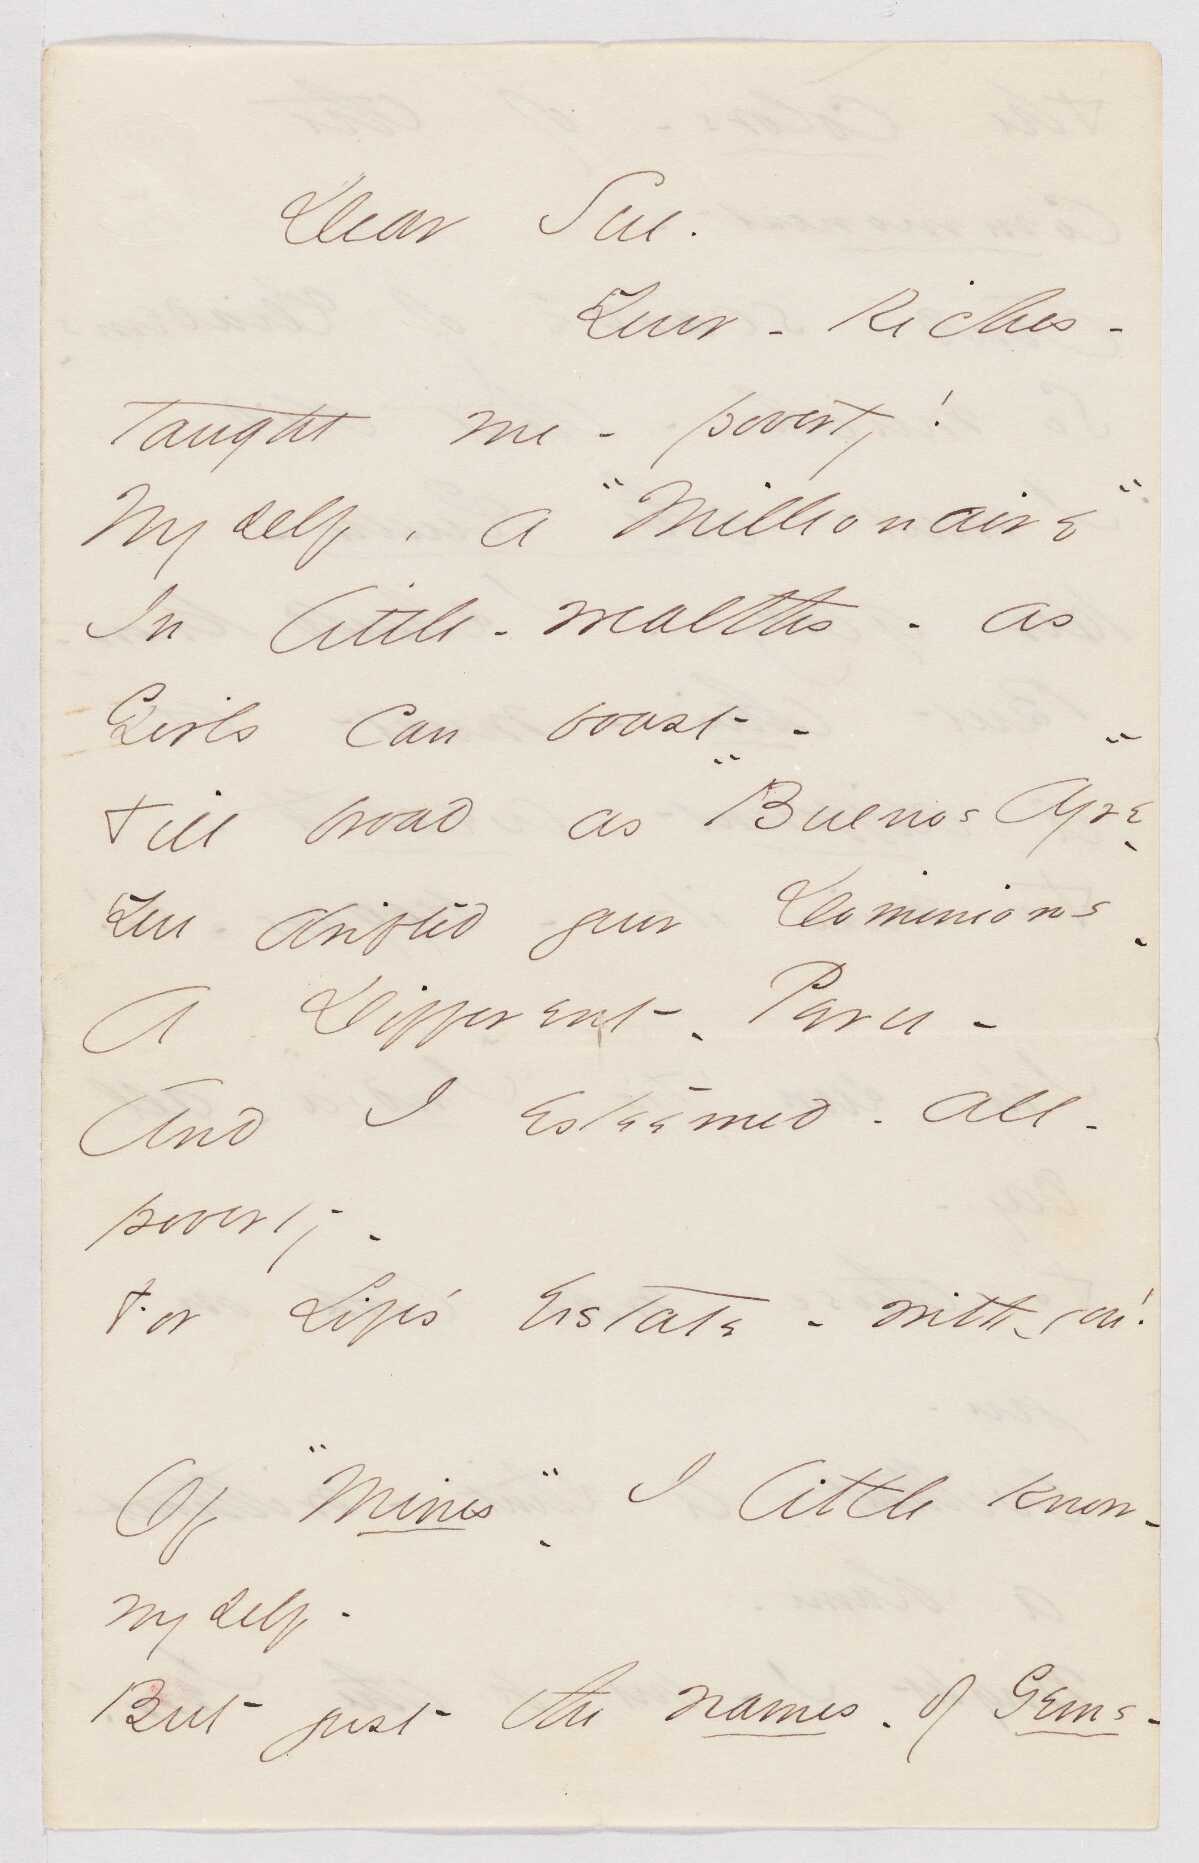 Dear Sue.
Your - Riches -
taught me - poverty!
Myself, a "Millionaire"
In little - wealths - as
Girls can boast -
Till broad as "Buenos Ayre" -
You drifted your Dominions -
A Different - Peru -
And I esteemed - all -
poverty -
For Life's Estate - with you!
Of "Mines" - I little know -
myself -
But just the names - of Gems -